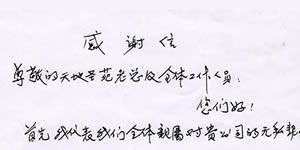 感谢信
尊敬的天地圣苑老总及全体工作人员:
您们好!
首先我代表我们全体亲属对贵公司的无私帮